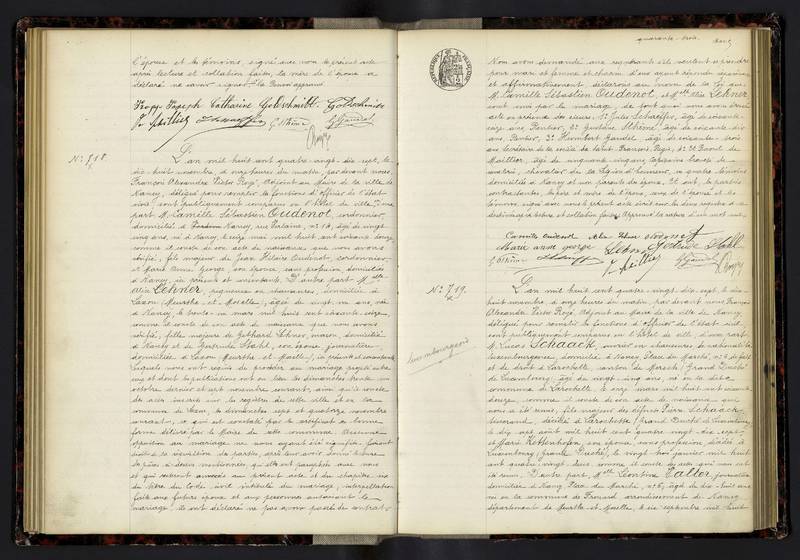 l'épouse et les témoins, signé avec nous le présent acte
après lecture et collation faite, la mère de l'épouse a
déclaré ne savoir signer.
Catharina Goldschmitt
N° 718.
L'an mil huit cent quatre-vingt-dix-sept, le
dix-huit novembre, à onze heures du matin, par devant nous
François Alexandre Victor Rogé, Adjoint au Maire de la ville de
Nancy, délégué pour remplir les fonctions d'officier de l'état-
civil, sont publiquement comparus en l'hôtel de ville: D'une
part M. Camille Sébastien Oudenot, cordonnier,
domicilié à Nancy, rue Verlaine, n° 14, âgé de vingt
cinq ans, né à Nancy, le seize mai mil huit cent soixante douze
comme il conste de son acte de naissance que nous avons
vérifié, fils majeur de Jean Hilaire Oudenot, cordonnier,
et Marie Anne George, son épouse sans profession, domiciliés
à Nancy, ici présents et consentants. D'autre part Mlle
Alix Lehner, domiciliée à
Laxou (Meurthe et Moselle), âgée de vingt-un ans, née
à Nancy, le trente-un mars mil huit cent soixante-seize,
comme il conste de son acte de naissance que nous avons
vérifié, fille majeure de Gothard Lehner, maçon, domicilié
à Nancy et de Gertrude Stahl, son épouse, journalière,
domiciliée à Laxou Meurthe et Moselle, ici présents et consentants
Lesquels nous ont requis de procéder au mariage projeté entre
eux et dont les publications ont eu lieu les dimanches trente-un
octobre dernier et sept novembre courant, ainsi qu'il conste
des actes inscrits sur les registres de cette ville et en la
commune de Laxou, les dimanches sept et quatorze novembre
courant, ce qui est constaté par le certificat en bonne
forme délivré par le Maire de cette commune. Aucune
opposition au mariage ne nous ayant été signifiée, faisant
droit à la réquisition des parties, après leur avoir donné lecture
des pièces ci-dessus mentionnées, qui ont été paraphées avec nous
et qui resteront annexées au présent acte et du chapitre six
du titre du Code civil intitulé du mariage, interpellation
faite aux futurs époux et aux personnes autorisant le
mariage, ils ont déclaré ne pas avoir passé de contrat.
quarante-trois.
Nous avons demandé aux requérants s'ils veulent se prendre
pour mari et femme et chacun d'eux ayant répondu séparément
et affirmativement, déclarons au nom de la loi que
M. Camille Sébastien Oudenot, et Mlle Alix Lehner
sont unis par le mariage. De tout quoi nous avons dressé
acte en présence des sieurs: 1° Jules Schaeffer, âgé de soixante
ans Rentier, 2° Gustave Sthème, âgé de soixante-dix
ans, Rentier, 3° Humbert Gaudel, âgé de soixante-trois
ans
retraité, chevalier de la Légion d'honneur, les quatre témoins
domiciliés à Nancy et non parents des époux. Et ont, les parties
contractantes, les père et mère de l'époux, ceux de l'épouse et les
témoins, signé avec nous le présent acte écrit sur les deux registres à ce
destinés après lecture et collation faites.
Camille Oudenot
Marie anne george
Stahl
N° 719.
Luxembourgeois
L'an mil huit cent quatre-vingt-dix-sept, le dix-
huit novembre, à onze heures du matin, par devant nous François
Alexandre Victor Rogé, Adjoint au Maire de la ville de Nancy
délégué pour remplir les fonctions d'officier de l'état-civil,
sont publiquement comparus en l'hôtel de ville: D'une part
M. Lucas Schaack, ouvrier en chaussures, de nationalité
luxembourgeoise, domicilié à Nancy, Place du Marché, n° 6 de fait
et de droit à Larochette, canton de Mersch (Grand Duché
de Luxembourg), âgé de vingt-cinq ans, né en la dite
commune de Larochette, le onze mars mil huit cent soixante
douze, comme il conste de son acte de naissance qui
nous a été remis, fils majeur des défunts Pierre Schaack,
tisserand, décédé à Larochette (Grand Duché de Luxembourg),
le dix août mil huit cent quatre-vingt-dix-sept,
et Marie Kettenhofen, son épouse, sans profession, décédée à
Luxembourg (Grand Duché), le vingt-huit janvier mil huit
cent quatre-vingt-seize comme il conste des actes qui nous ont
été remis. D'autre part Mlle Léontine Vallor, journalière
domiciliée à Nancy, Place du Marché, n° 6, âgée de dix-huit ans
née en la commune de Frouard arrondissement de Nancy
département de Meurthe et Moselle, le six septembre mil huit